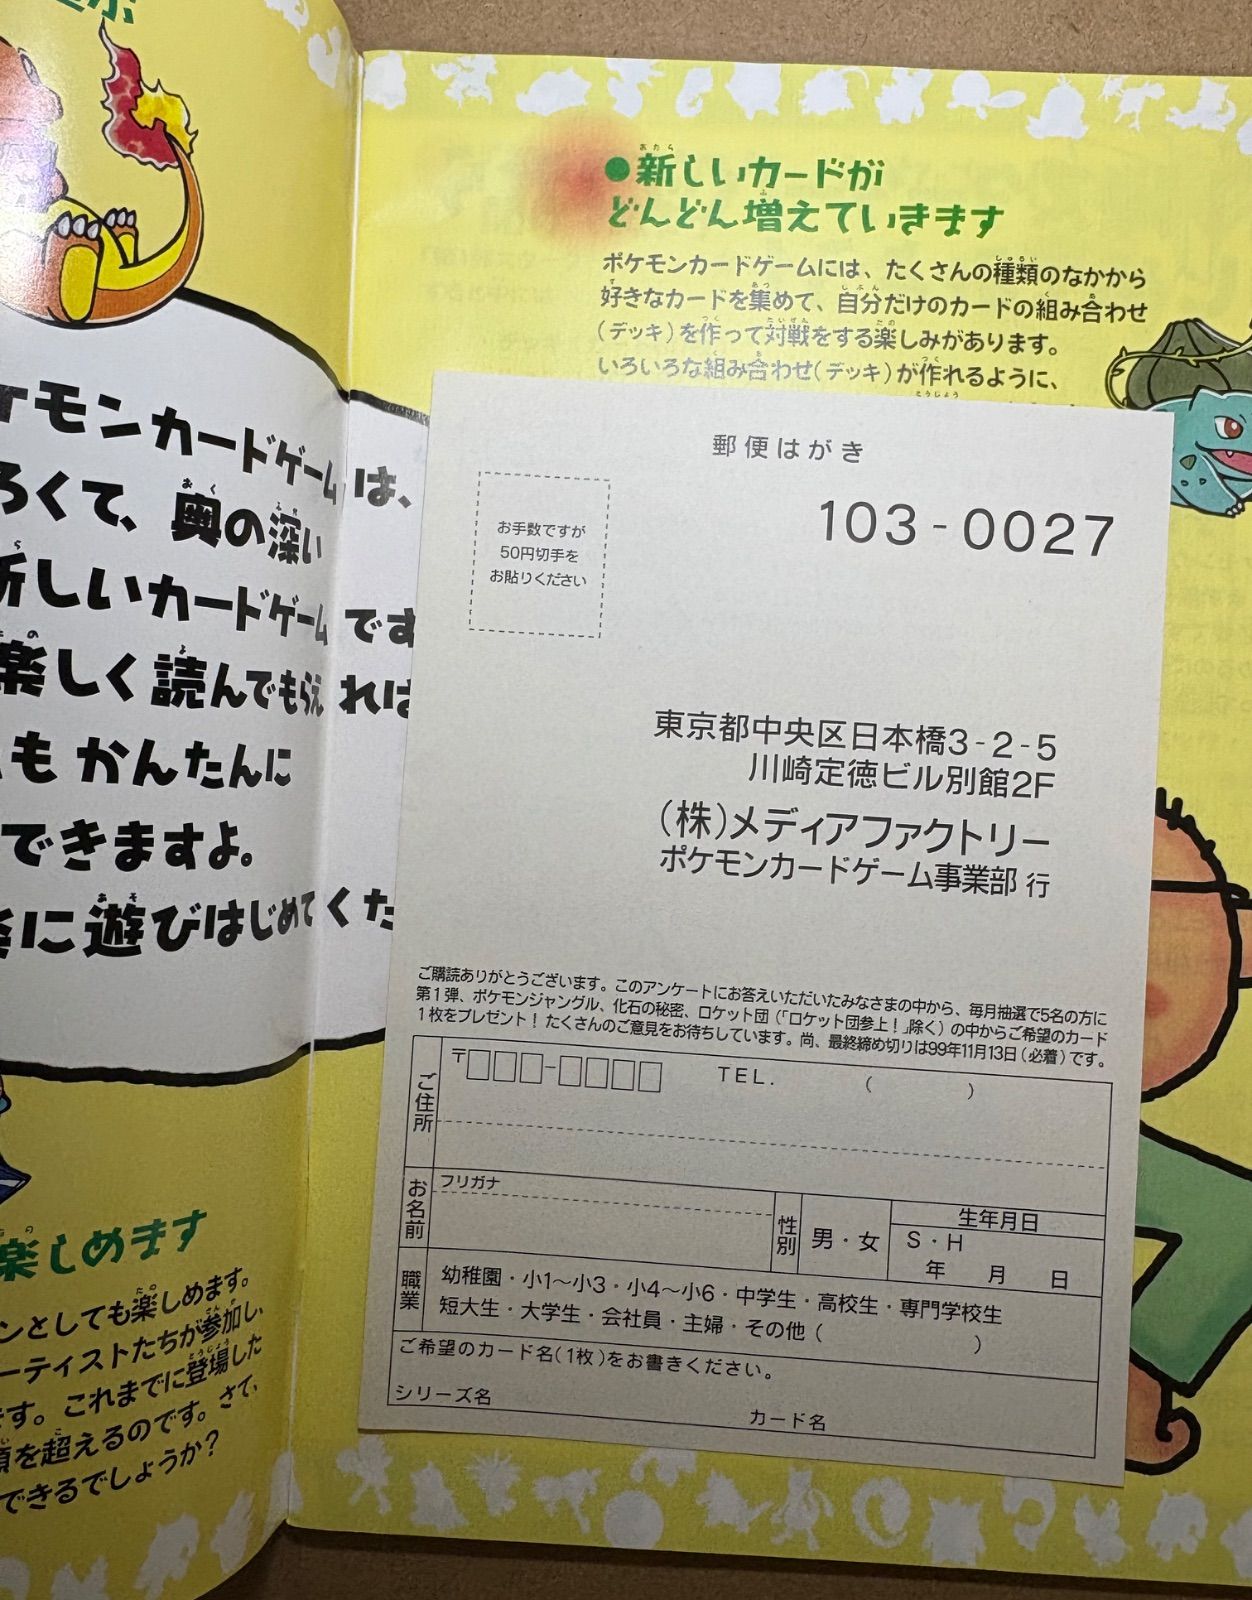 ケモンカードゲームは、
ろくて、奥の深い
新しいカードゲームです
楽しく読んでもらえれば
もかんたんに
できますよ。
に遊びはじめてくた
楽しめます
ンとしても楽しめます。
ーティストたちが参加し
す。これまでに登場した
を超えるのです。さて、
できるでしょうか？
●新しいカードが
どんどん増えていきます
ポケモンカードゲームには、たくさんの種類のなかから
好きなカードを集めて、自分だけのカードの組み合わせ
（デッキ）を作って対戦をする楽しみがあります。
いろいろな組み合わせ（デッキ）が作れるように、
郵便はがき
お手数ですが
50円切手を
お貼りください
103-0027
東京都中央区日本橋3-2-5
川崎定徳ビル別館2F
（株）メディアファクトリー
ポケモンカードゲーム事業部 行
ご購読ありがとうございます。このアンケートにお答えいただいたみなさまの中から、毎月抽選で5名の方に
第1弾、ポケモンジャングル、化石の秘密、ロケット団（「ロケット団参上！」除く）の中からご希望のカード
1枚をプレゼント！たくさんのご意見をお待ちしています。尚、最終締め切りは99年11月13日（必着）です。
ご住所
〒□□□-□□□□ TEL. （ ）
お名前
フリガナ
性別
男・女
生年月日
S・H
年 月 日
職業
幼稚園・小1～小3・小4～小6・中学生・高校生・専門学校生
短大生・大学生・会社員・主婦・その他（ ）
ご希望のカード名（1枚）をお書きください。
シリーズ名
カード名